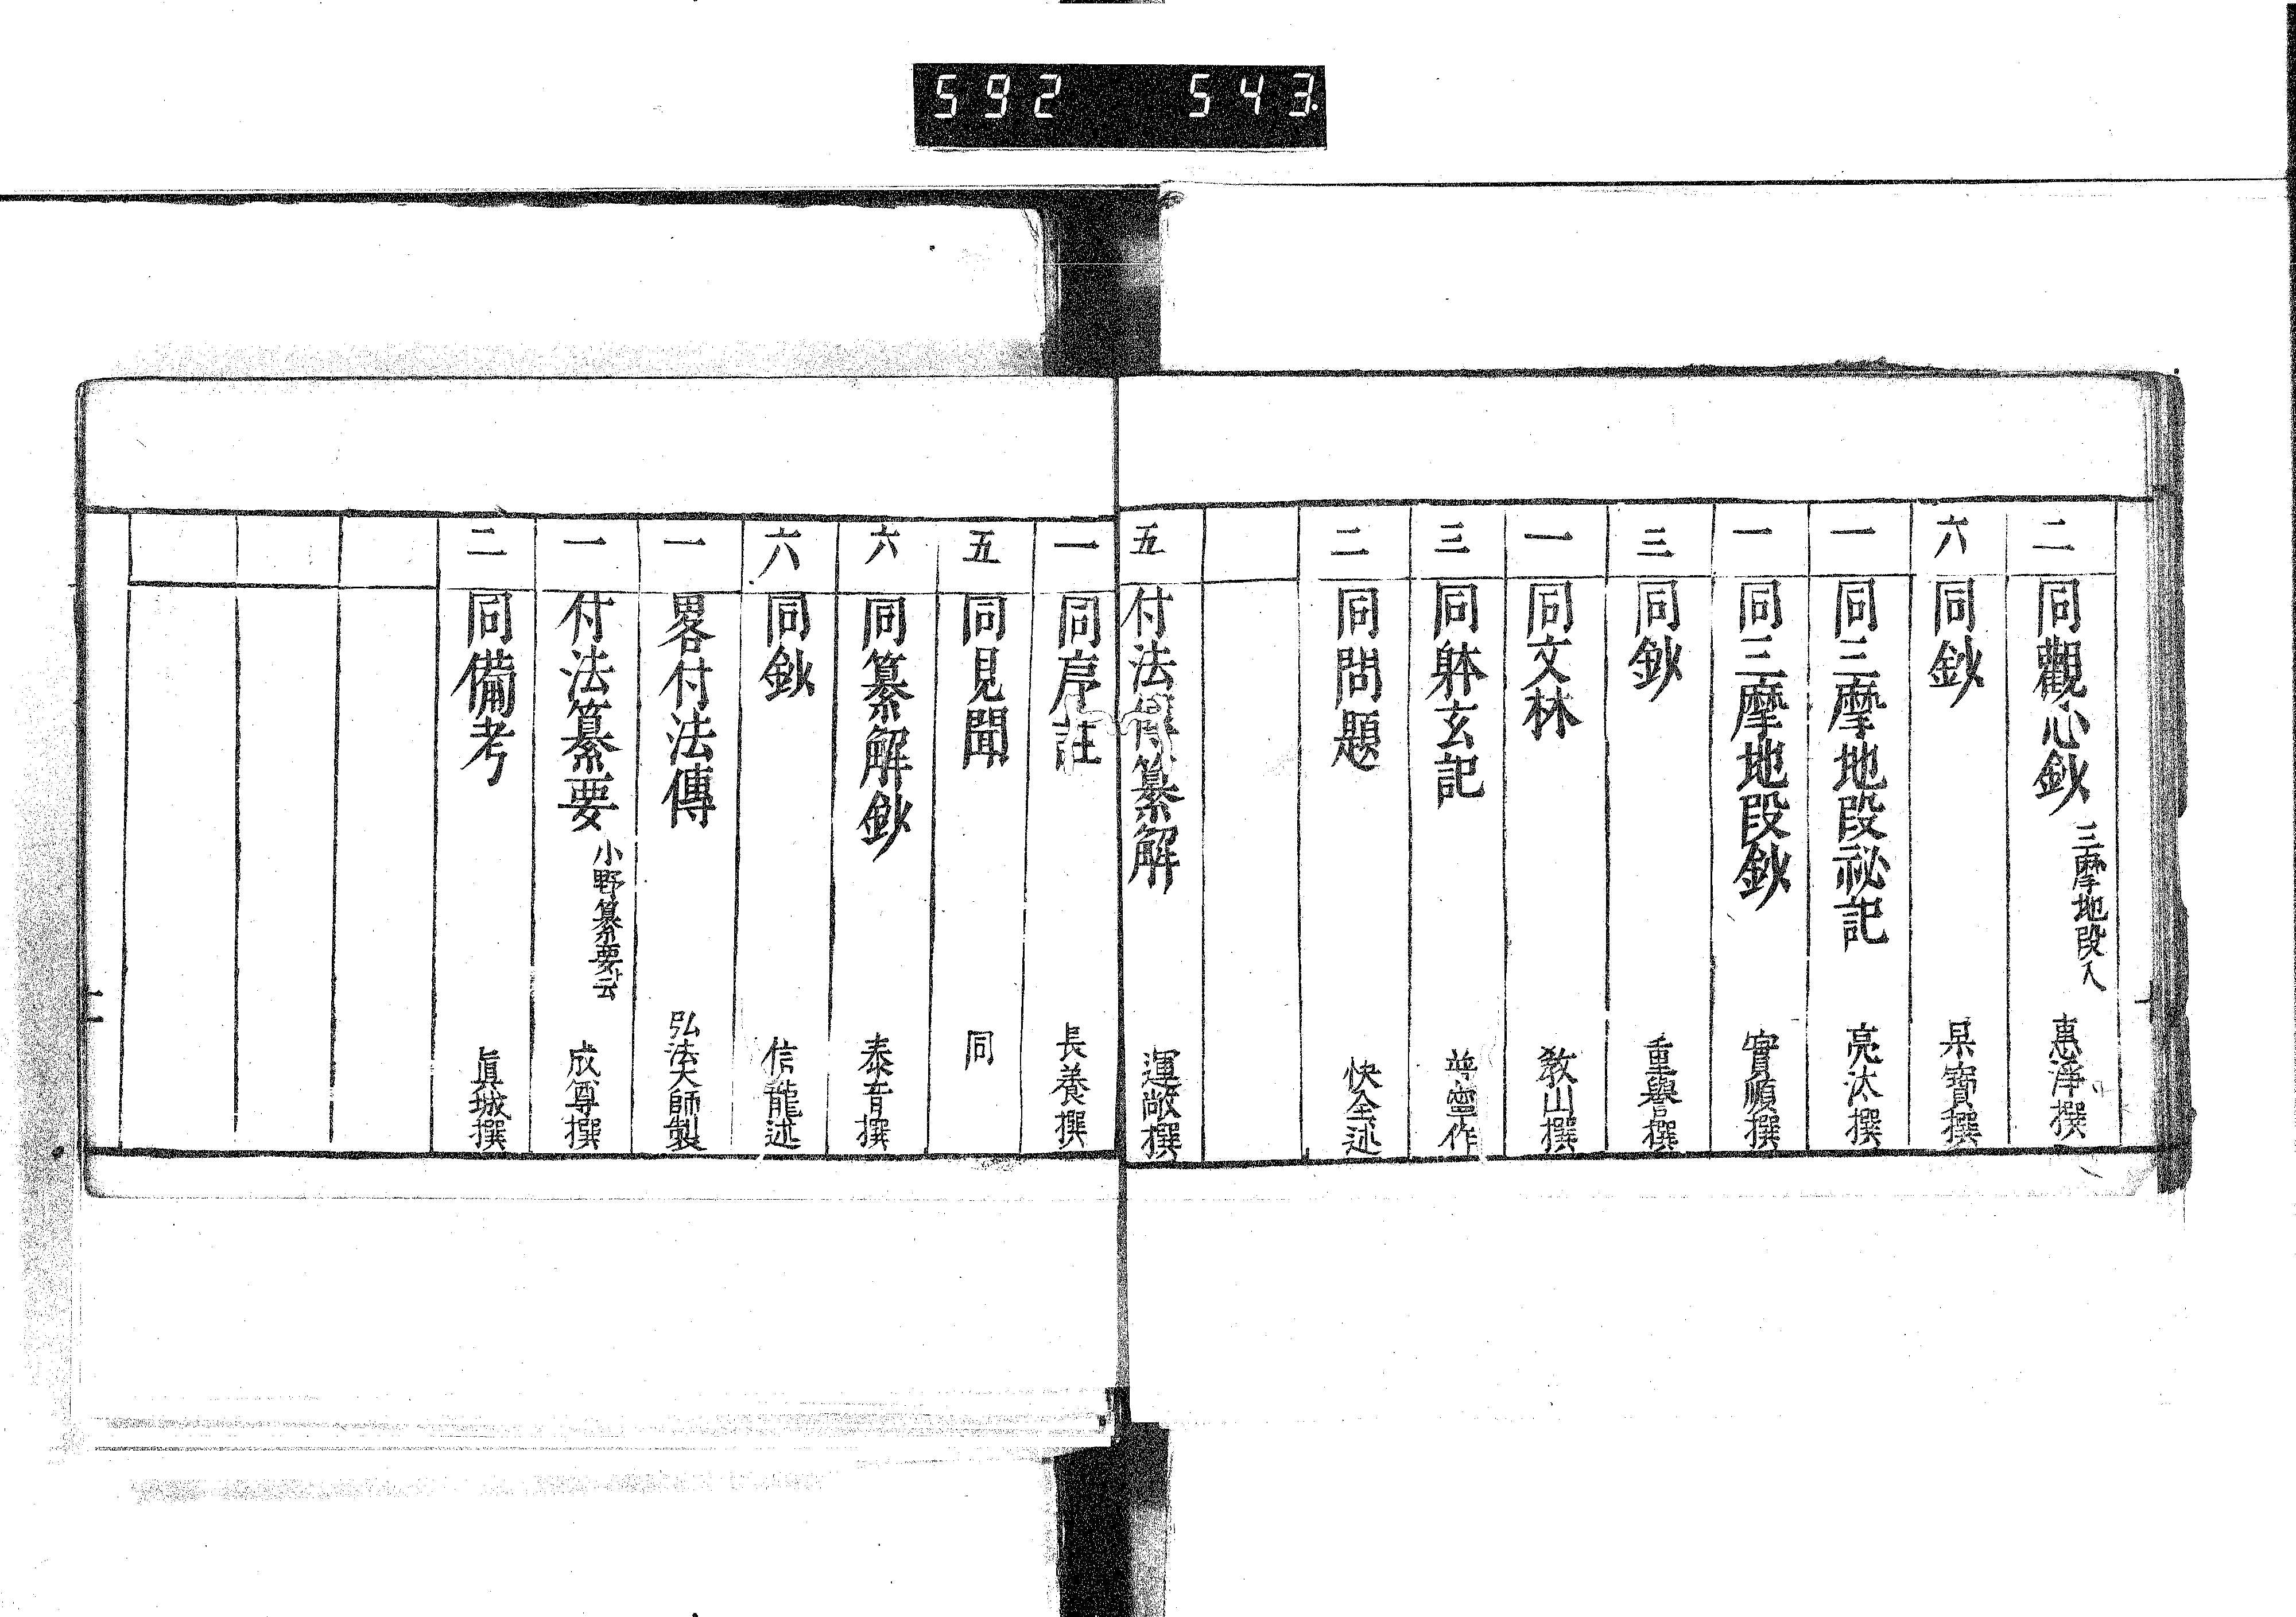 592 543
二 同觀心鈔 三摩地段入 惠淨撰
六 同鈔 杲寶撰
一 同三摩地段祕記 亮汰撰
一 同三摩地段鈔 實順撰
三 同鈔 重譽撰
一 同文林 教山撰
三 同躰玄記 作
二 同問題 快全述
五 付法傳纂解 運敞撰
一 同序註 長養撰
五 同見聞 同
六 同纂解鈔 泰音撰
六 同鈔 信龍述
一 畧付法傳 弘法大師製
一 付法纂要 小野纂要ト云 成尊撰
二 同備考 眞城撰